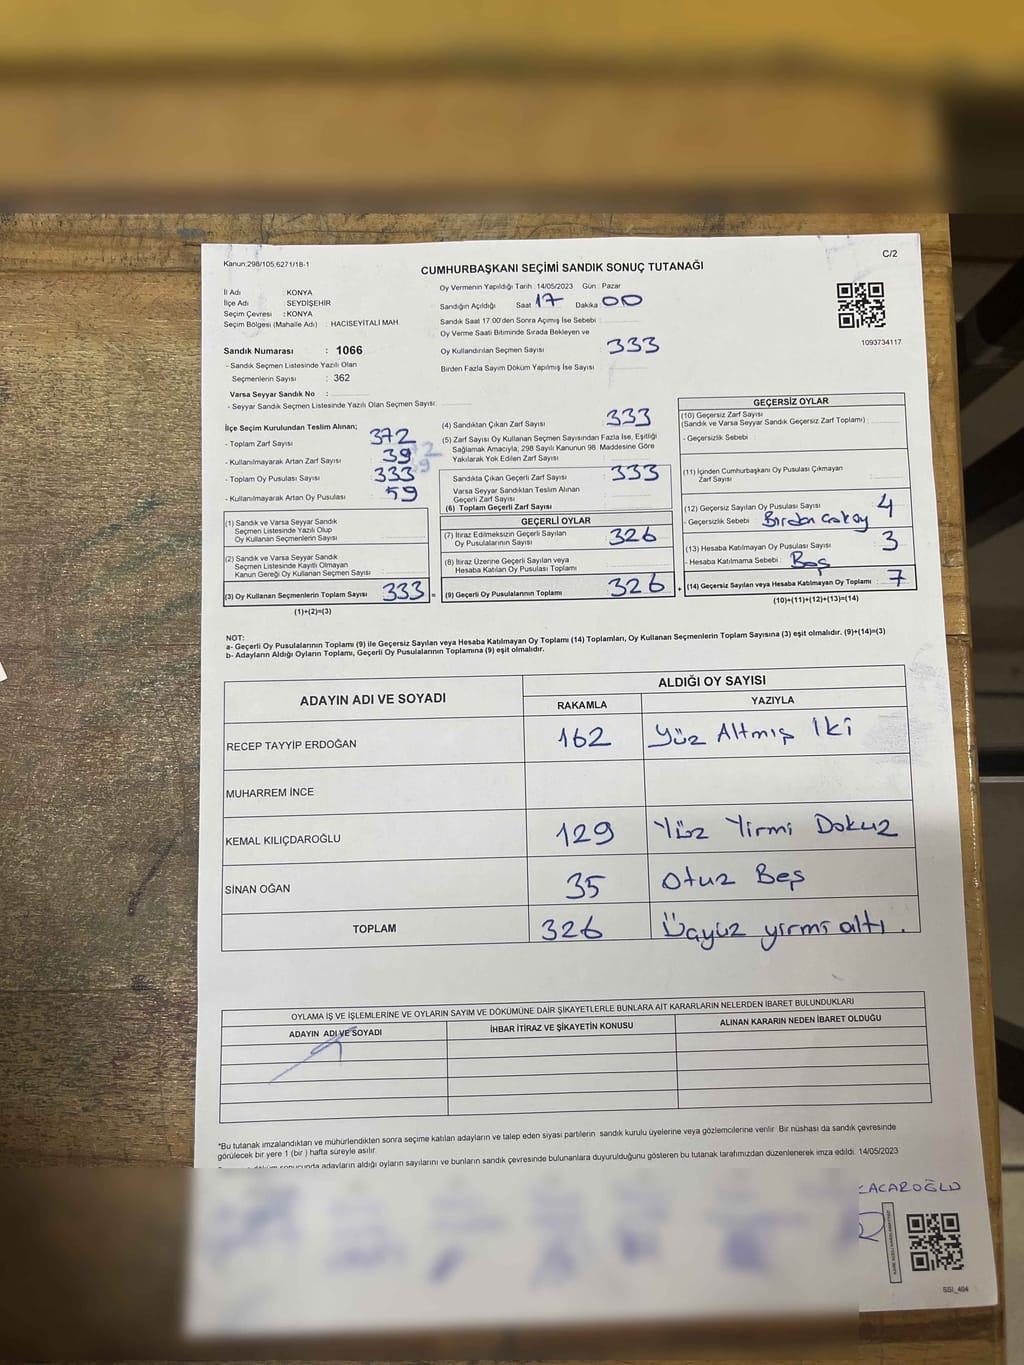 Kanun;298/105,6271/18-1
C/2
CUMHURBAŞKANI SEÇİMİ SANDIK SONUÇ TUTANAĞI
İl Adı : KONYA
İlçe Adı : SEYDİŞEHİR
Seçim Çevresi : KONYA
Seçim Bölgesi (Mahalle Adı) : HACISEYİTALİ MAH.
Oy Vermenin Yapıldığı Tarih : 14/05/2023 Gün : Pazar
Sandığın Açıldığı Saat 17 Dakika 00
Sandık Saat 17:00'den Sonra Açımış İse Sebebi
Oy Verme Saati Bitiminde Sırada Bekleyen ve
Oy Kullandırılan Seçmen Sayısı 333
Birden Fazla Sayım Döküm Yapılmış İse Sayısı
1093734117
Sandık Numarası : 1066
- Sandık Seçmen Listesinde Yazılı Olan
Seçmenlerin Sayısı : 362
Varsa Seyyar Sandık No :
- Seyyar Sandık Seçmen Listesinde Yazılı Olan Seçmen Sayısı:
İlçe Seçim Kurulundan Teslim Alınan;
- Toplam Zarf Sayısı 372
- Kullanılmayarak Artan Zarf Sayısı 39
- Toplam Oy Pusulası Sayısı 333
- Kullanılmayarak Artan Oy Pusulası 59
(1) Sandık ve Varsa Seyyar Sandık
Seçmen Listesinde Yazılı Olup
Oy Kullanan Seçmenlerin Sayısı
(2) Sandık ve Varsa Seyyar Sandık
Seçmen Listesinde Kayıtlı Olmayan
Kanun Gereği Oy Kullanan Seçmen Sayısı
(3) Oy Kullanan Seçmenlerin Toplam Sayısı 333 =
(1)+(2)=(3)
(4) Sandıktan Çıkan Zarf Sayısı 333
(5) Zarf Sayısı Oy Kullanan Seçmen Sayısından Fazla İse, Eşitliği
Sağlamak Amacıyla; 298 Sayılı Kanunun 98. Maddesine Göre
Yakılarak Yok Edilen Zarf Sayısı
Sandıkta Çıkan Geçerli Zarf Sayısı 333
Varsa Seyyar Sandıktan Teslim Alınan
Geçerli Zarf Sayısı
(6) Toplam Geçerli Zarf Sayısı
GEÇERLİ OYLAR
(7) İtiraz Edilmeksizin Geçerli Sayılan
Oy Pusulalarının Sayısı 326
(8) İtiraz Üzerine Geçerli Sayılan veya
Hesaba Katılan Oy Pusulası Toplamı
(9) Geçerli Oy Pusulalarının Toplamı 326 +
GEÇERSİZ OYLAR
(10) Geçersiz Zarf Sayısı
(Sandık ve Varsa Seyyar Sandık Geçersiz Zarf Toplamı)
- Geçersizlik Sebebi
(11) İçinden Cumhurbaşkanı Oy Pusulası Çıkmayan
Zarf Sayısı
(12) Geçersiz Sayılan Oy Pusulası Sayısı 4
- Geçersizlik Sebebi Birden çok oy
(13) Hesaba Katılmayan Oy Pusulası Sayısı 3
- Hesaba Katılmama Sebebi : Boş
(14) Geçersiz Sayılan veya Hesaba Katılmayan Oy Toplamı : 7
(10)+(11)+(12)+(13)=(14)
NOT:
a- Geçerli Oy Pusulalarının Toplamı (9) ile Geçersiz Sayılan veya Hesaba Katılmayan Oy Toplamı (14) Toplamları, Oy Kullanan Seçmenlerin Toplam Sayısına (3) eşit olmalıdır. (9)+(14)=(3)
b- Adayların Aldığı Oyların Toplamı, Geçerli Oy Pusulalarının Toplamına (9) eşit olmalıdır.
ADAYIN ADI VE SOYADI
ALDIĞI OY SAYISI
RAKAMLA YAZIYLA
RECEP TAYYİP ERDOĞAN 162 Yüz Altmış İki
MUHARREM İNCE
KEMAL KILIÇDAROĞLU 129 Yüz Yirmi Dokuz
SİNAN OĞAN 35 Otuz Beş
TOPLAM 326 Üçyüz yirmi altı.
OYLAMA İŞ VE İŞLEMLERİNE VE OYLARIN SAYIM VE DÖKÜMÜNE DAİR ŞİKAYETLERLE BUNLARA AİT KARARLARIN NELERDEN İBARET BULUNDUKLARI
ADAYIN ADI VE SOYADI İHBAR İTİRAZ VE ŞİKAYETİN KONUSU ALINAN KARARIN NEDEN İBARET OLDUĞU
*Bu tutanak imzalandıktan ve mühürlendikten sonra seçime katılan adayların ve talep eden siyasi partilerin sandık kurulu üyelerine veya gözlemcilerine verilir. Bir nüshası da sandık çevresinde
görülecek bir yere 1 (bir ) hafta süreyle asılır.
adayların aldığı oyların sayılarını ve bunların sandık çevresinde bulunanlara duyurulduğunu gösteren bu tutanak tarafımızdan düzenlenerek imza edildi. 14/05/2023
ACAROĞLU